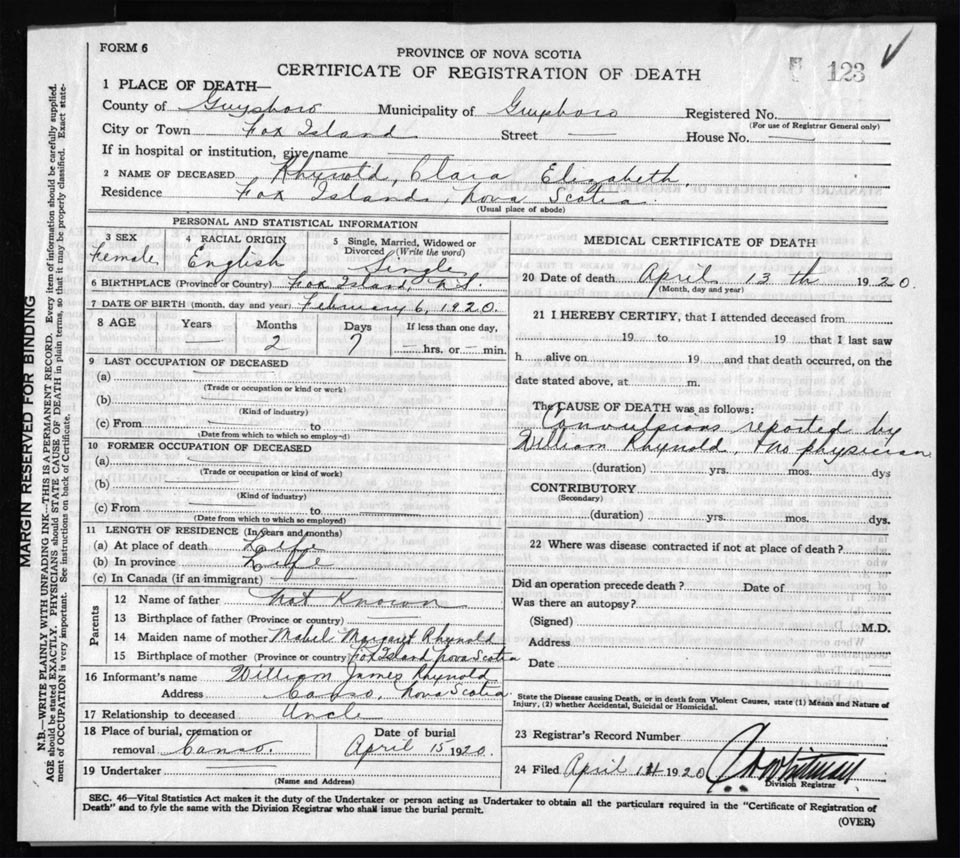 FORM 6
PROVINCE OF NOVA SCOTIA
CERTIFICATE OF REGISTRATION OF DEATH
123
1 PLACE OF DEATH—
County of Guysboro Municipality of Guysboro Registered No.
(For use of Registrar General only)
City or Town Fox Island Street — House No. —
If in hospital or institution, give name —
2 NAME OF DECEASED Rhynold, Clara Elizabeth.
Residence Fox Island, Nova Scotia.
(Usual place of abode)
PERSONAL AND STATISTICAL INFORMATION
3 SEX Female
4 RACIAL ORIGIN English
5 Single, Married, Widowed or Divorced (Write the word) Single
6 BIRTHPLACE (Province or Country) Fox Island, N.S.
7 DATE OF BIRTH (month, day and year) February 6, 1920.
8 AGE Years Months Days If less than one day,
— 2 7 — hrs. or — min.
9 LAST OCCUPATION OF DECEASED
(a)
(Trade or occupation or kind or work)
(b)
(Kind of industry)
(c) From to
(Date from which to which so employed)
10 FORMER OCCUPATION OF DECEASED
(a)
(Trade or occupation or kind of work)
(b)
(Kind of industry)
(c) From to
(Date from which to which so employed)
11 LENGTH OF RESIDENCE (In years and months)
(a) At place of death Life
(b) In province Life
(c) In Canada (if an immigrant) —
Parents
12 Name of father Not Known
13 Birthplace of father (Province or country) —
14 Maiden name of mother Mabel Margaret Rhynold
15 Birthplace of mother (Province or country) Fox Island Nova Scotia
16 Informant's name William James Rhynold
Address Canso, Nova Scotia.
17 Relationship to deceased Uncle
18 Place of burial, cremation or removal Canso.
Date of burial April 15 1920.
19 Undertaker
(Name and Address)
MEDICAL CERTIFICATE OF DEATH
20 Date of death April 13th 1920.
(Month, day and year)
21 I HEREBY CERTIFY, that I attended deceased from
19 to 19 that I last saw
h alive on 19 and that death occurred, on the
date stated above, at m.
The CAUSE OF DEATH was as follows:
Convulsions reported by
William Rhynold, no physician
(duration) yrs. mos. dys
CONTRIBUTORY
(Secondary)
(duration) yrs. mos. dys.
22 Where was disease contracted if not at place of death?
Did an operation precede death? Date of
Was there an autopsy?
(Signed) M.D.
Address
Date
State the Disease causing Death, or in death from Violent Causes, state (1) Means and Nature of
Injury, (2) whether Accidental, Suicidal or Homicidal.
23 Registrar's Record Number
24 Filed April 1920 Whitman
Division Registrar
SEC. 46—Vital Statistics Act makes it the duty of the Undertaker or person acting as Undertaker to obtain all the particulars required in the "Certificate of Registration of
Death" and to fyle the same with the Division Registrar who shall issue the burial permit.
(OVER)
MARGIN RESERVED FOR BINDING
N.B.—WRITE PLAINLY WITH UNFADING INK—THIS IS A PERMANENT RECORD. Every item of information should be carefully supplied.
AGE should be stated EXACTLY. PHYSICIANS should STATE CAUSE OF DEATH in plain terms, so that it may be properly classified. Exact state-
ment of OCCUPATION is very important. See instructions on back of Certificate.